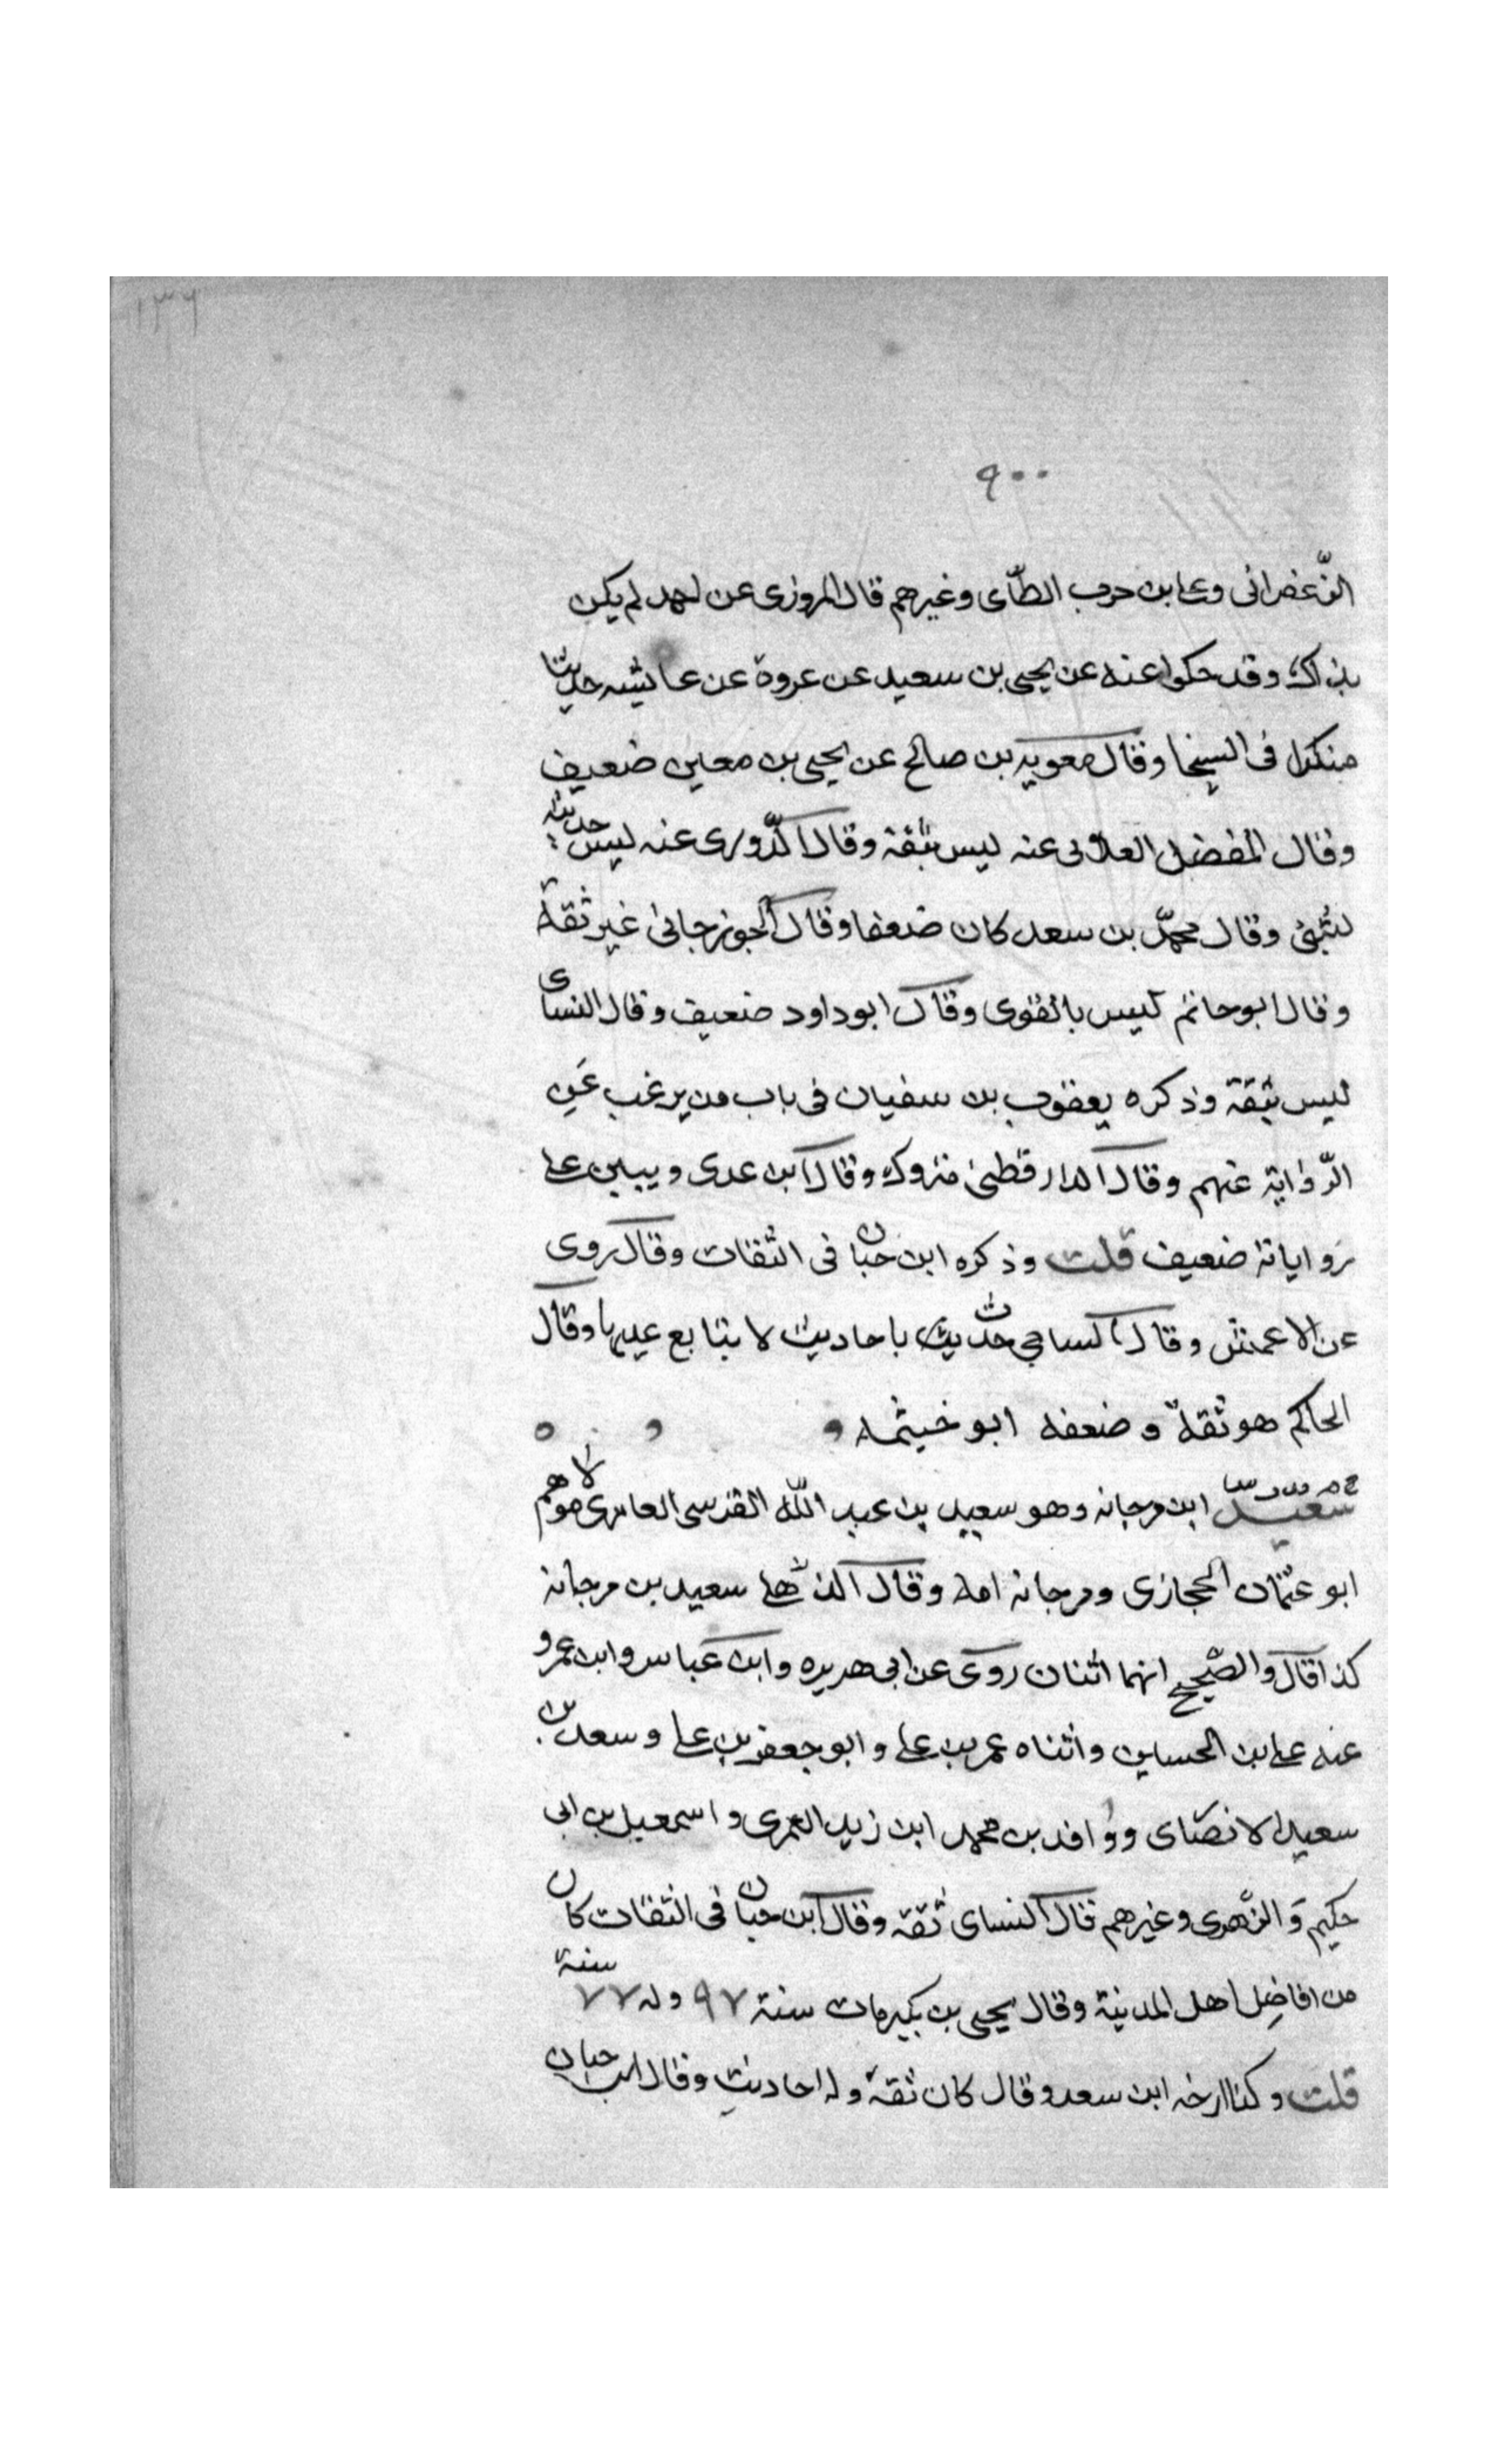 ١٣٦
٩٠٠
الزّعفرانى وعلى بن حرب الطّاى وغيرهم قال المروزى عن احمد لم يكن
بذاك وقد حكوا عنه عن يحيى بن سعيد عن عروة عن عايشه حديثا
منكرا فى السخا وقال معويه بن صالح عن يحيى بن معين ضعيف
وقال المفضل العلائى عنه ليس بثقة وقال الدّورى عنه ليس حديثه
بشئ وقال محمّد بن سعد كان ضعفا وقال الجوزجانى غير ثقة
وقال ابو حاتم ليس بالقوى وقال ابو داود ضعيف وقال النساى
ليس بثقة وذكره يعقوب بن سفيان فى باب من يرغب عَنِ
الرّواية عنهم وقال الدارقطنى متروك وقال ابن عدى ويبين على
رواياته ضعيف قلت وذكره ابن حبان فى الثقات وقال روى
عن الاعمش وقال الساجى حدّيث باحاديث لا يتابع عليها وقال
الحاكم هو ثقة وضعفه ابو خيثمه
سعيد ابن مرجانه وهو سعيد بن عبد اللّه القرسى العامرى مولاهم
ابو عثمان الحجازى ومرجانه امه وقال الذّهلى سعيد بن مرجانه
كذا قال والصّحيح انهما اثنان روى عن ابى هريره وابن عباس وابن عمرو
عنه على بن الحساين واثناه عمر بن على وابو جعفر بن على وسعد بن
سعيد الانصاى وواقد بن محمد ابن زيد العمرى واسمعيل بن ابى
حكيم وَالزّهرى وغيرهم قال النساى ثقة وقال ابن حبان فى الثقات كان
من افاضل اهل المدينة وقال يحيى بن بكير مات سنة ٩٧ وله ٧٧ سنة
قلت وكذا ارخه ابن سعد وقال كان ثقة وله احاديث وقال ابن حبان